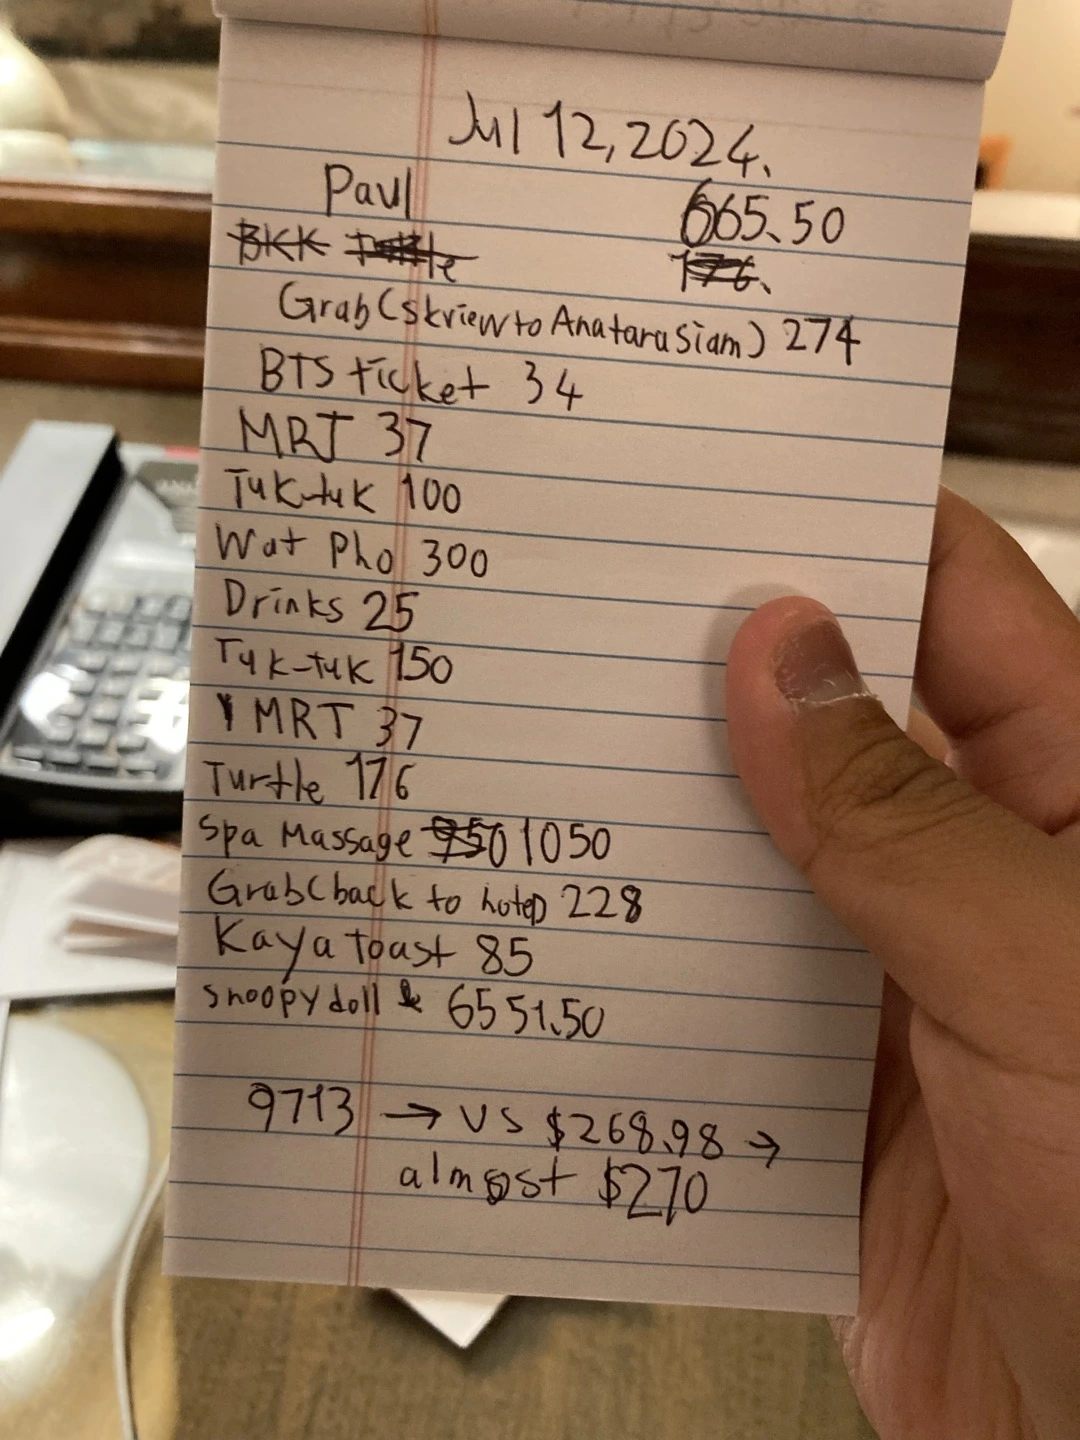 Jul 12, 2024.
Paul 665.50
BKK Turtle 176.
Grab (skview to Anatara Siam) 274
BTS ticket 34
MRT 37
Tuk-tuk 100
Wat Pho 300
Drinks 25
Tuk-tuk 150
MRT 37
Turtle 176
Spa Massage 950 1050
Grab (back to hotel) 228
Kaya toast 85
snoopy doll & 6551.50
9713 → US $268.98 →
almost $270